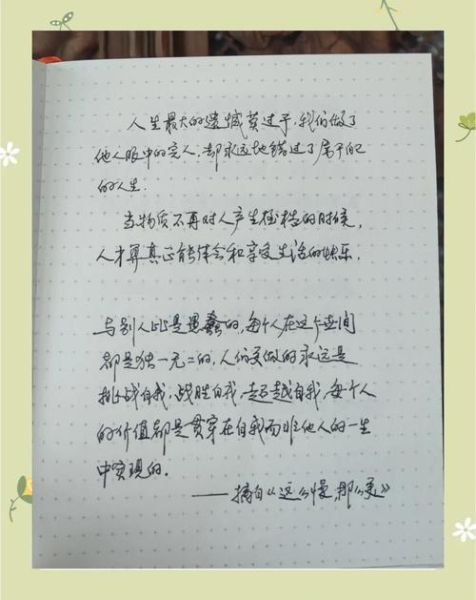 人生最大的遗憾莫过于,我们做了
他人眼中的完人,却永远地错过了属于自己
的人生.
当物质不再对人产生桎梏的时候,
人才算真正能体会和享受生活的快乐.
与别人比是愚蠢的,每个人在这个世间
都是独一无二的,人们要做的永远是
挑战自我,战胜自我,超越自我,每个人
的价值都是贯穿在自我而非他人的一生
中实现的.
——摘自《这么慢,那么美》